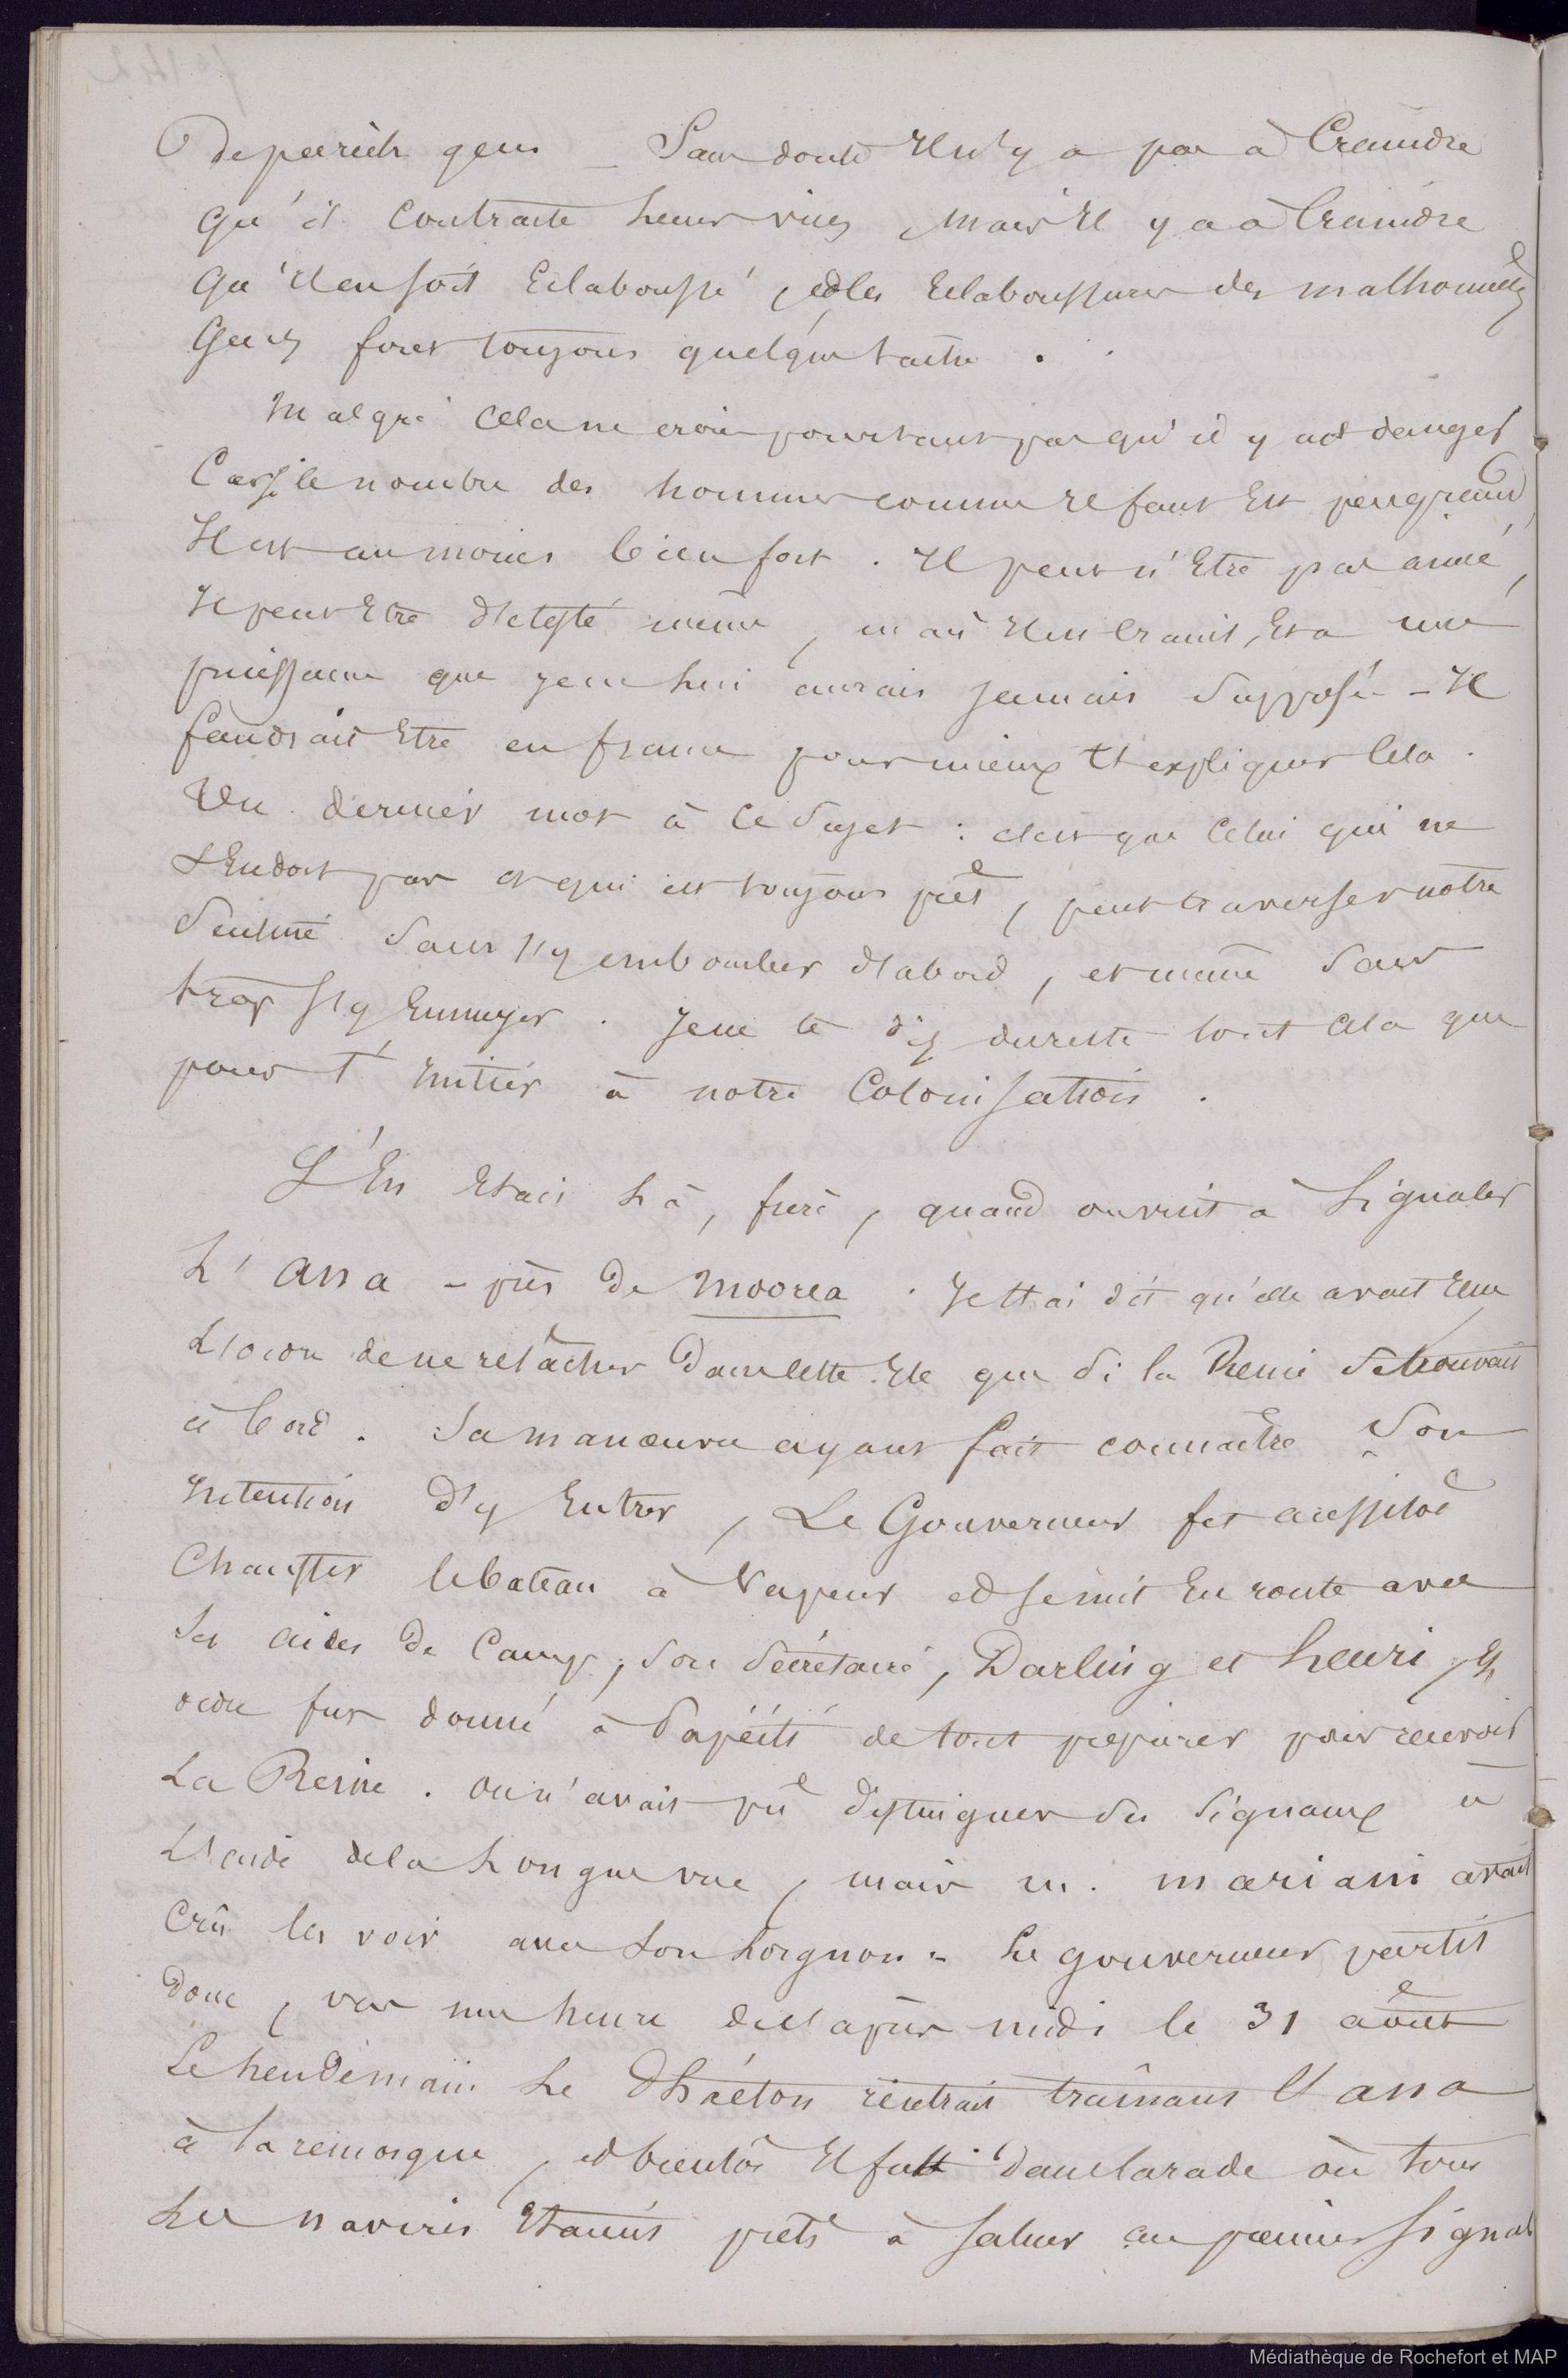 De pareils gens _ Sans doute Il n'y a pas à Craindre
qu'il contracte leurs vices, mais Il y a à Craindre
qu'Il en soit Eclaboussé, et les Eclaboussures des malhonnêtes
Gens font toujours quelque tache.
Malgré Cela ne crois pourtant pas qu'il y ait danger
Car si le nombre des hommes comme Il faut Est peu grand,
Il est au moins bien fort. Il peut n'Etre pas aimé,
Il peut Etre détesté même, mais Il est Craint, Et a une
puissance que je ne lui aurais jamais supposée - Il
faudrait Etre en france pour mieux t'expliquer Cela.
Un dernier mot à Ce Sujet : c'est que Celui qui ne
s'Endort pas et qui est toujours prêt, peut traverser notre
Sentine Sans s'y embourber d'abord, et même Sans
trop s'y Ennuyer. Je ne te dis du reste tout Cela que
pour t'initier à notre Colonisation.
J'En Etais là, frère, quand on vint à signaler
L'Ana - près de Moorea. Je t'ai dit qu'elle avait Eue
L'ordre de ne relâcher Dans cette Ile que Si la Reine Se trouvait
à bord. Sa manœuvre ayant fait connaître Son
Intention d'y Entrer, Le Gouverneur fit aussitôt
Chauffer le bateau à Vapeur et se mit En route avec
Ses aides De Camp, Son Secrétaire, Darling et henri, Et
ordre fut donné à Papéïti de tout préparer pour recevoir
La Reine. On n'avait pû distinguer ses signaux à
L'aide de la Longue vue, mais m. mariani avait
Crû les voir avec Son Lorgnon - Le gouverneur partit
Donc, vers une heure de l'après midi le 31 août
Le Lendemain Le Phaéton rentrait traînant l'ana
à la remorque, et bientôt Il fut dans la rade où tous
Les navires Etaient prêts à saluer au premier signal
Médiathèque de Rochefort et MAP